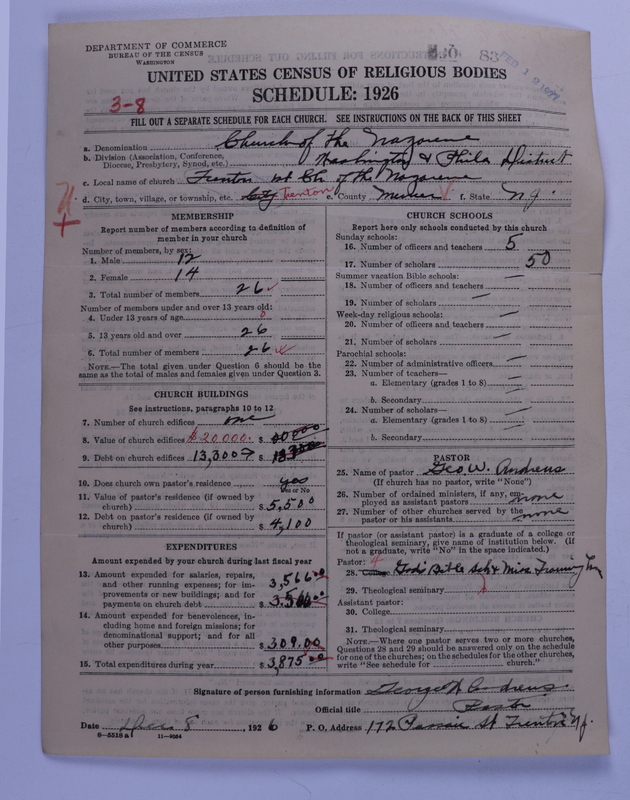 DEPARTMENT OF COMMERCE
BUREAU OF THE CENSUS
WASHINGTON
83
UNITED STATES CENSUS OF RELIGIOUS BODIES
SCHEDULE: 1926
3-8
FILL OUT A SEPARATE SCHEDULE FOR EACH CHURCH. SEE INSTRUCTIONS ON THE BACK OF THIS SHEET
a. Denomination Church of the Nazarene
b. Division (Association, Conference, Diocese, Presbytery, Synod, etc.) Washington & Phila District
c. Local name of church Trenton 1st Ch. of the Nazarene
d. City, town, village, or township, etc. City Trenton e. County Mercer f. State N.J.
MEMBERSHIP
Report number of members according to definition of
member in your church
Number of members, by sex:
1. Male 12
2. Female 14
3. Total number of members 26
Number of members under and over 13 years old:
4. Under 13 years of age 0
5. 13 years old and over 26
6. Total number of members 26
NOTE.—The total given under Question 6 should be
same as the total of males and females given under Question 3.
CHURCH BUILDINGS
See instructions, paragraphs 10 to 12
7. Number of church edifices one
8. Value of church edifices $20000. $
9. Debt on church edifices 13,300 $
10. Does church own pastor's residence yes
Yes or No
11. Value of pastor's residence (if owned by
church) $ 5,500
12. Debt on pastor's residence (if owned by
church) $ 4,100
EXPENDITURES
Amount expended by your church during last fiscal year
13. Amount expended for salaries, repairs,
and other running expenses; for im-
provements or new buildings; and for
payments on church debt $ 3,566.00
14. Amount expended for benevolences, in-
cluding home and foreign missions; for
denominational support; and for all
other purposes $ 309.00
15. Total expenditures during year $ 3,875.00
CHURCH SCHOOLS
Report here only schools conducted by this church
Sunday schools:
16. Number of officers and teachers 5
17. Number of scholars 50
Summer vacation Bible schools:
18. Number of officers and teachers —
19. Number of scholars —
Week-day religious schools:
20. Number of officers and teachers —
21. Number of scholars —
Parochial schools:
22. Number of administrative officers —
23. Number of teachers—
a. Elementary (grades 1 to 8) —
b. Secondary —
24. Number of scholars—
a. Elementary (grades 1 to 8) —
b. Secondary —
PASTOR
25. Name of pastor Geo. W. Andrews
(If church has no pastor, write "None")
26. Number of ordained ministers, if any, em-
ployed as assistant pastors none
27. Number of other churches served by the
pastor or his assistants none
If pastor (or assistant pastor) is a graduate of a college or
theological seminary, give name of institution below. (If
not a graduate, write "No" in the space indicated.)
Pastor:
28. College God's Bible Sch & Miss Training
29. Theological seminary
Assistant pastor:
30. College
31. Theological seminary
NOTE.—Where one pastor serves two or more churches,
Questions 28 and 29 should be answered only on the schedule
for one of the churches; on the schedules for the other churches,
write "See schedule for church."
Signature of person furnishing information George W Andrews
Official title Pastor
Date Dec 8, 1926 P. O. Address 172 Passaic St Trenton N.J.
8-5518a 11-9064